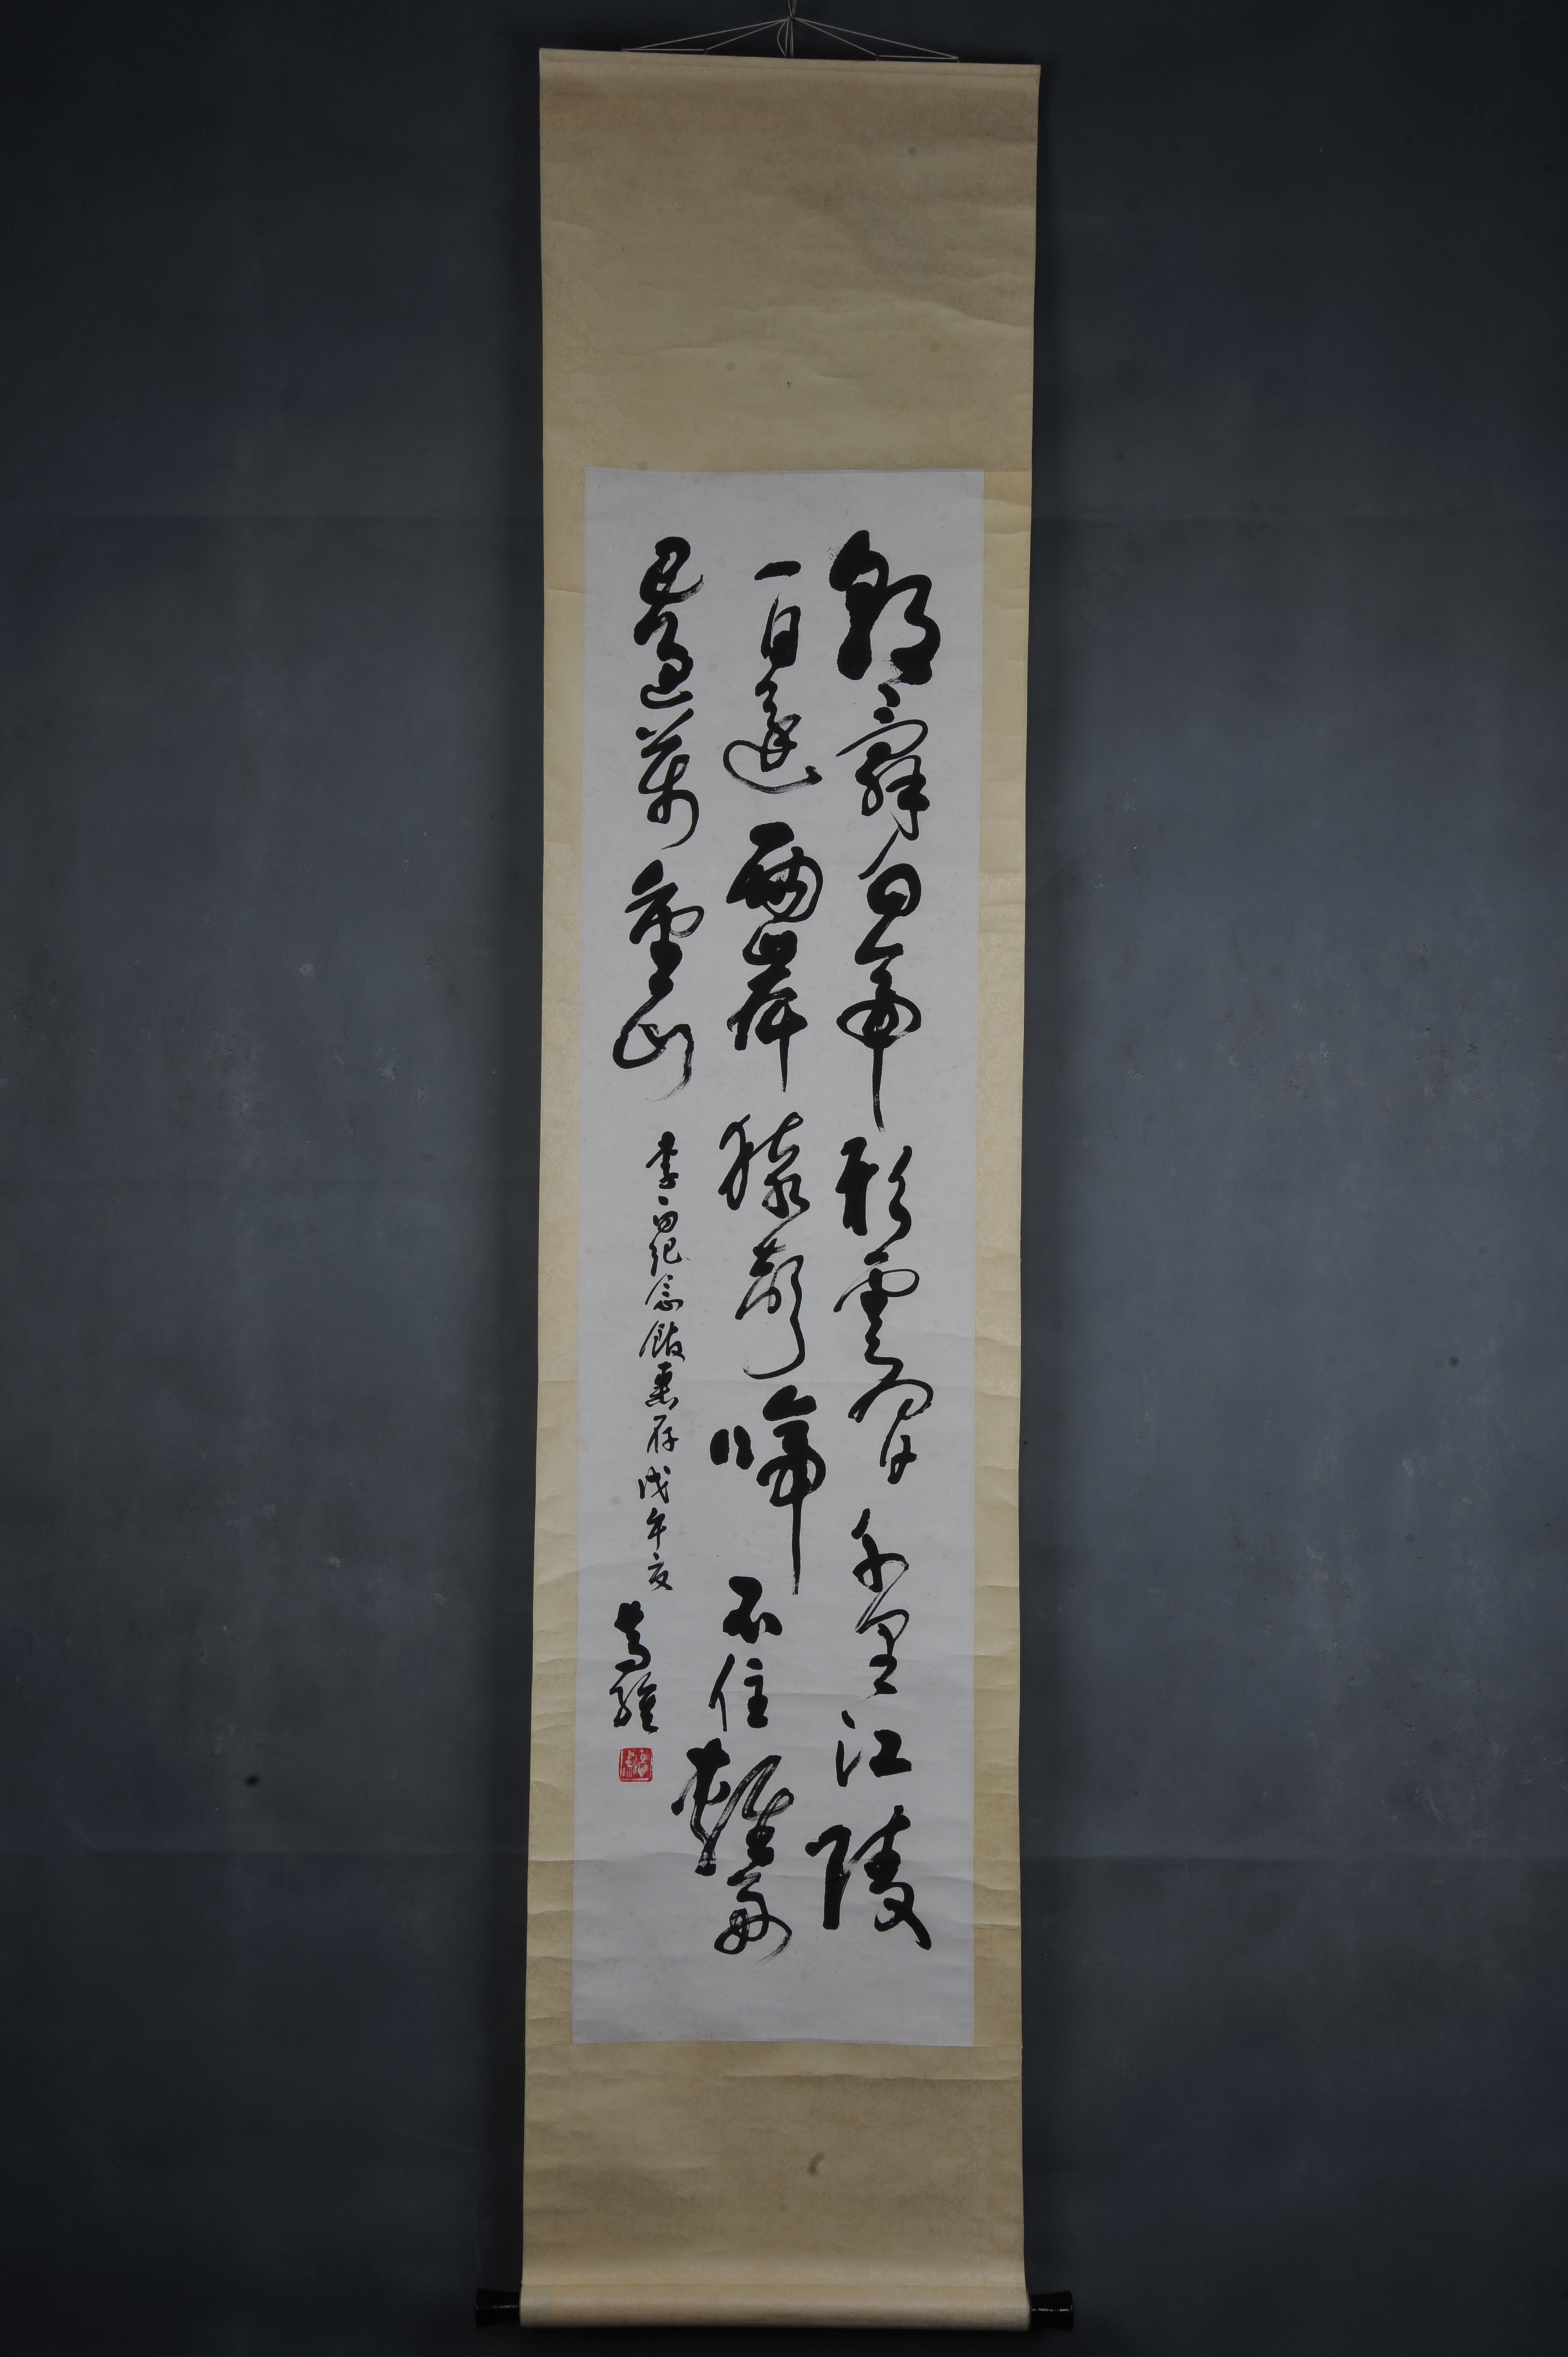 朝辭白帝彩雲間千里江陵
一日還兩岸猿聲啼不住輕舟
已過萬重山
李白紀念館惠存戊午夏